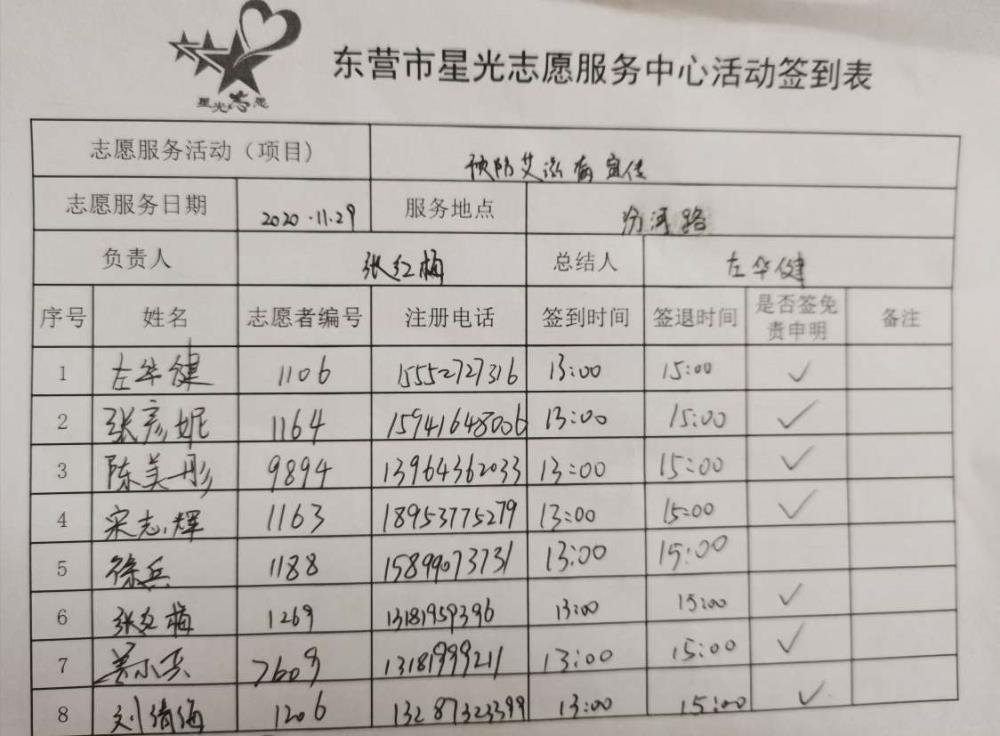 星光志愿
东营市星光志愿服务中心活动签到表
志愿服务活动（项目） 预防艾滋病宣传
志愿服务日期 2020.11.29 服务地点 汾河路
负责人 张红梅 总结人 左华健
序号 姓名 志愿者编号 注册电话 签到时间 签退时间 是否签免责申明 备注
1 左华健 1106 15552727316 13:00 15:00 ✓
2 张彦妮 1164 15941648006 13:00 15:00 ✓
3 陈美彤 9894 13964362033 13:00 15:00 ✓
4 宋志辉 1163 18953775279 13:00 15:00 ✓
5 徐兵 1188 15899073731 13:00 15:00
6 张红梅 1269 13181959396 13:00 15:00 ✓
7 吴小兵 7609 13181999211 13:00 15:00 ✓
8 刘倩梅 1206 13287323399 13:00 15:00 ✓